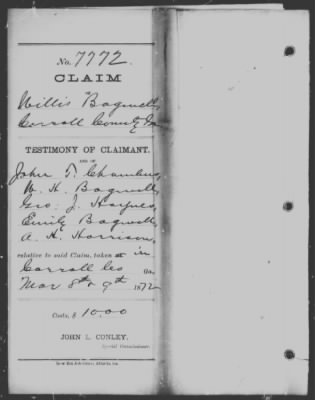 No. 7772.
CLAIM
Willis Bagwell,
Carroll County Ga
TESTIMONY OF CLAIMANT.
AND OF
John T. Chambers,
W. H. Bagwell,
Geo. J. Haynes,
Emily Bagwell,
A. H. Harrison,
relative to said Claim, taken at in
Carroll Co Ga.
Mar 8th & 9th 1872
Costs, $ 10.00
JOHN L. CONLEY,
Special Commissioner.